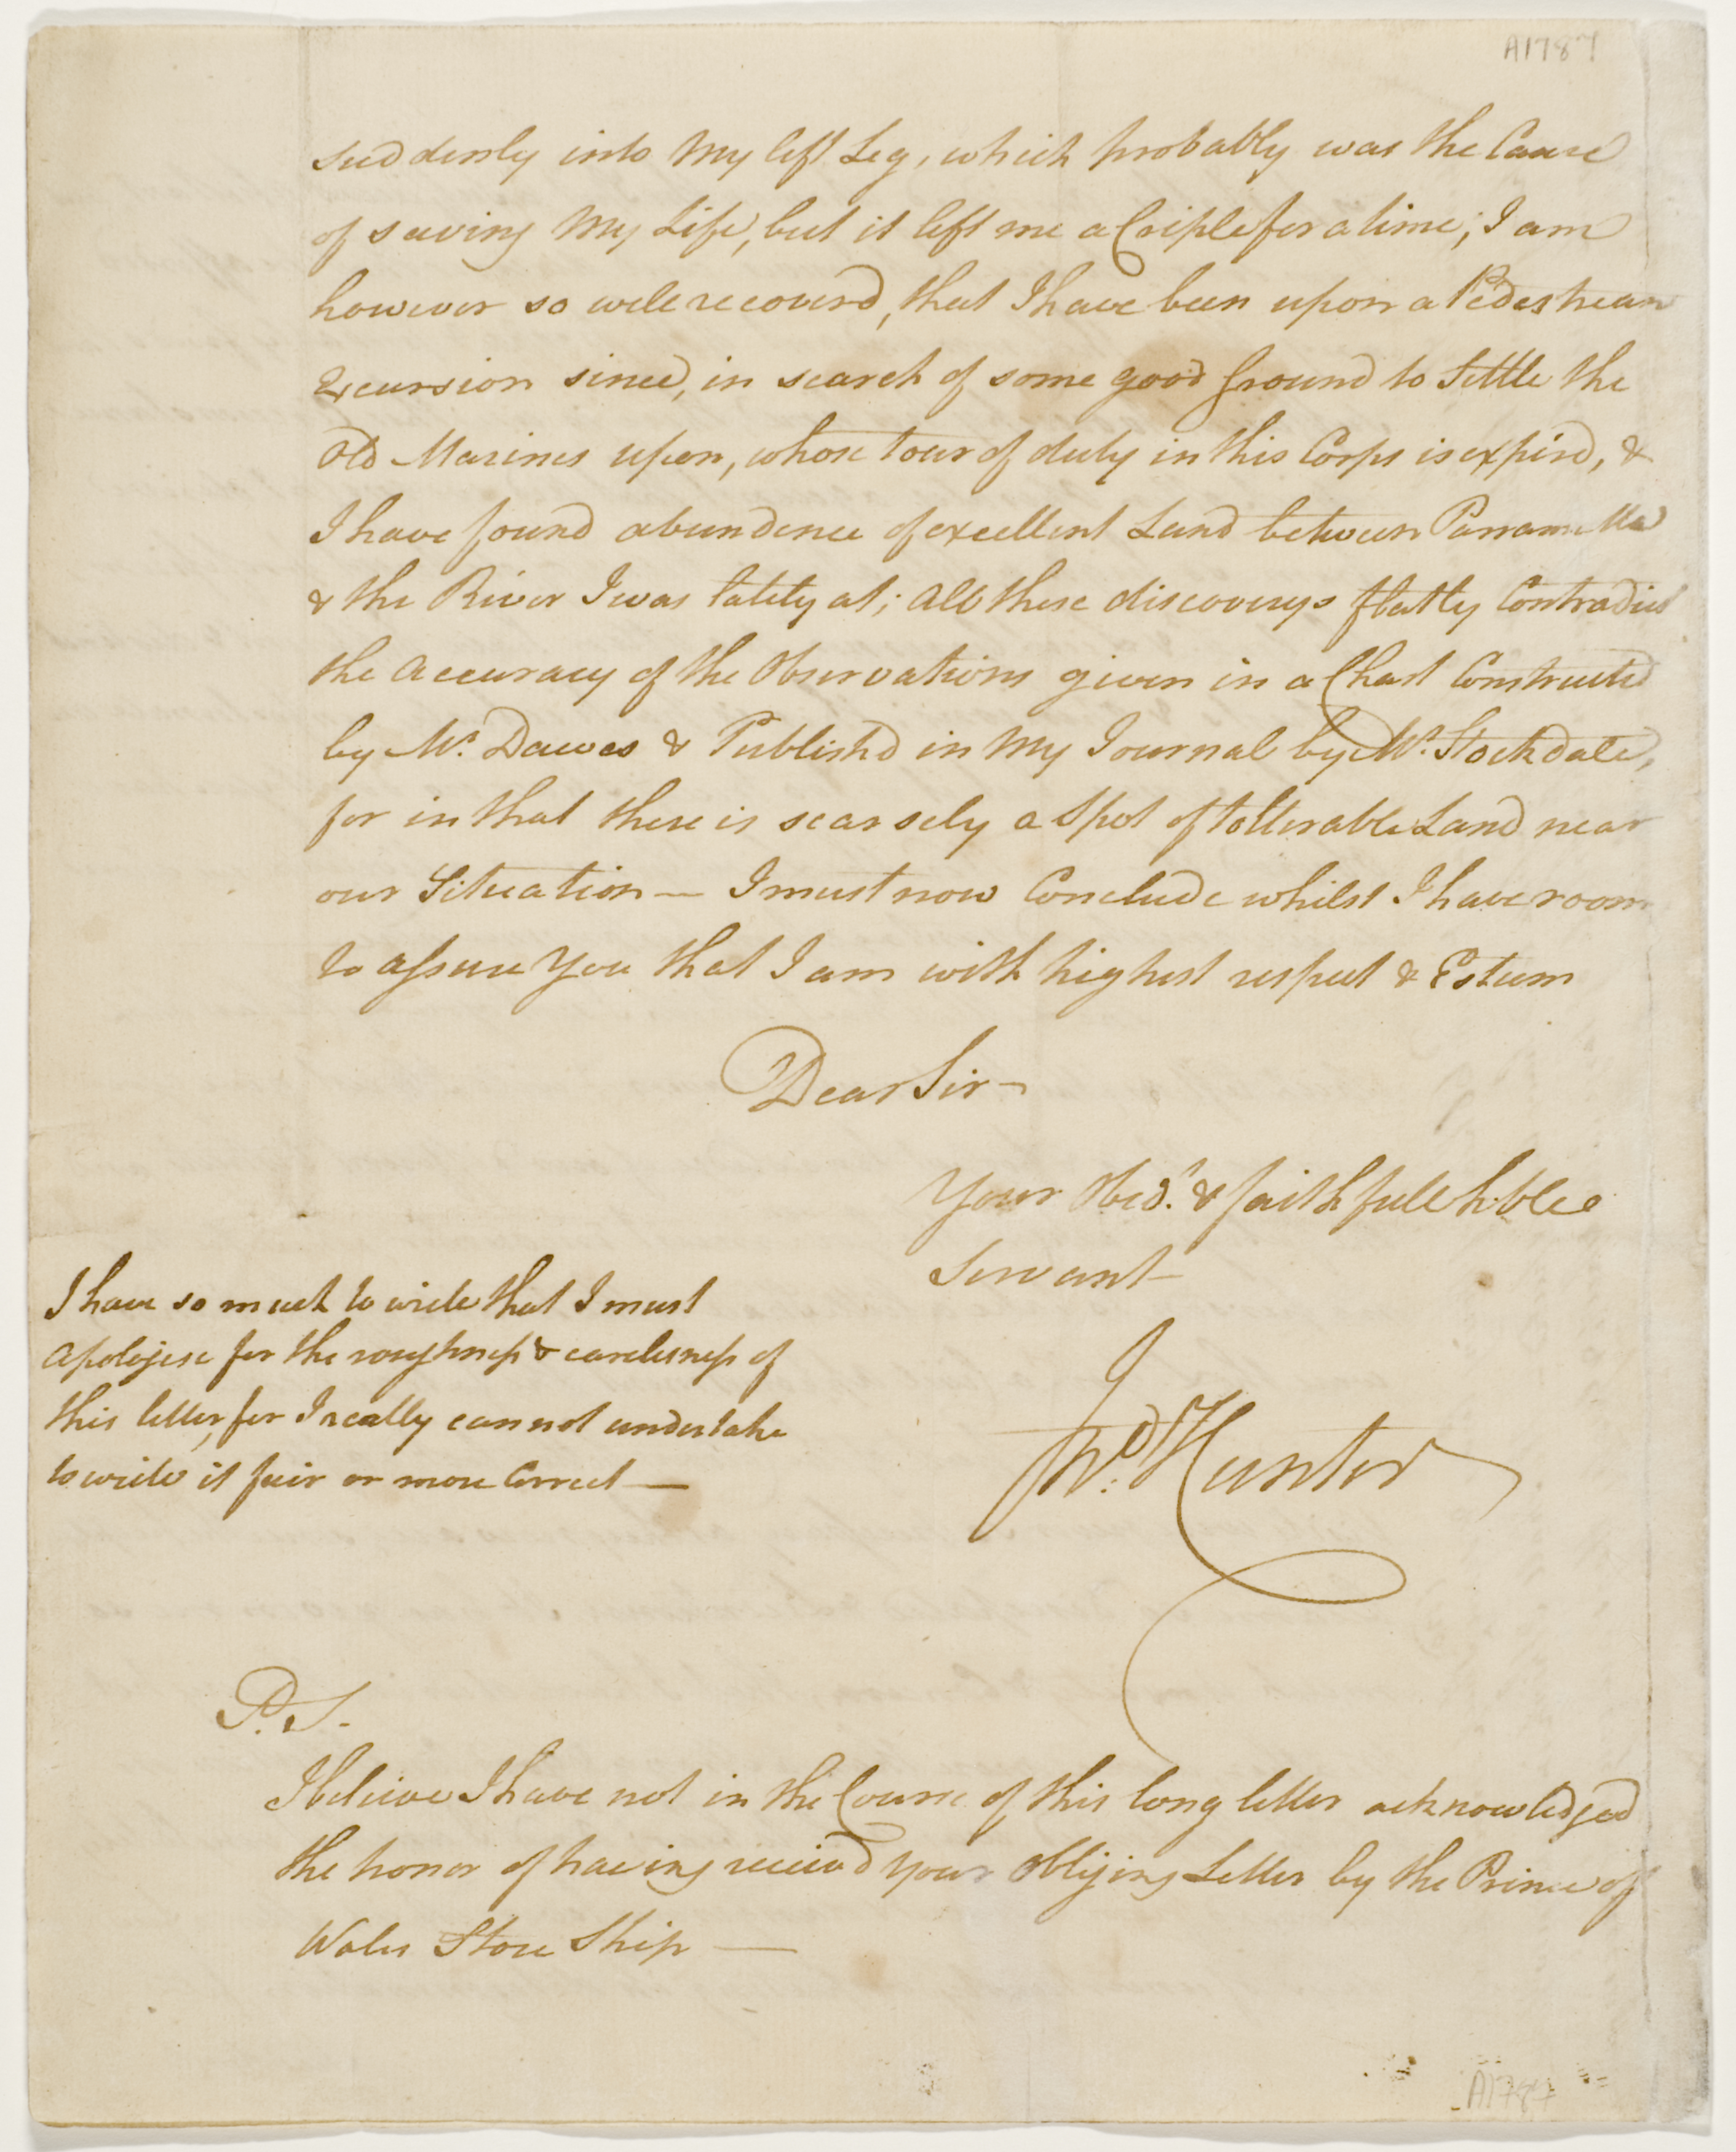 A1787
suddenly into My left Leg, which probably was the Cause
of saving My Life, but it left me a Criple for a time; I am
however so well recoverd, that I have been upon a Pedestrean
Excursion since, in search of some good Ground to Settle the
Old Marines upon, whose tour of duty in this Corps is expird, &
I have found abundence of excellent Land between Parramatta
& the River I was lately at; all these discoverys flatly Contradict
the Accuracy of the Observations given in a Chart Constructed
by Mr. Dawes & Publishd in My Journal by Mr. Stockdale,
for in that there is scarsely a Spot of tollerable Land near
our Situation — I must now Conclude whilst I have room
to assure You that I am with highest respect & Esteem
Dear Sir —
Your Obedt. & faithfull hble
Servant
Jno. Hunter
I have so much to write that I must
apologise for the roughness & carelesness of
this letter, for I really cannot undertake
to write it fair or more Correct —
P.S.
I beleive I have not in the Course of this long letter acknowledged
the honor of having receivd your obliging Letter by the Prince of
Wales Store Ship —
A1787